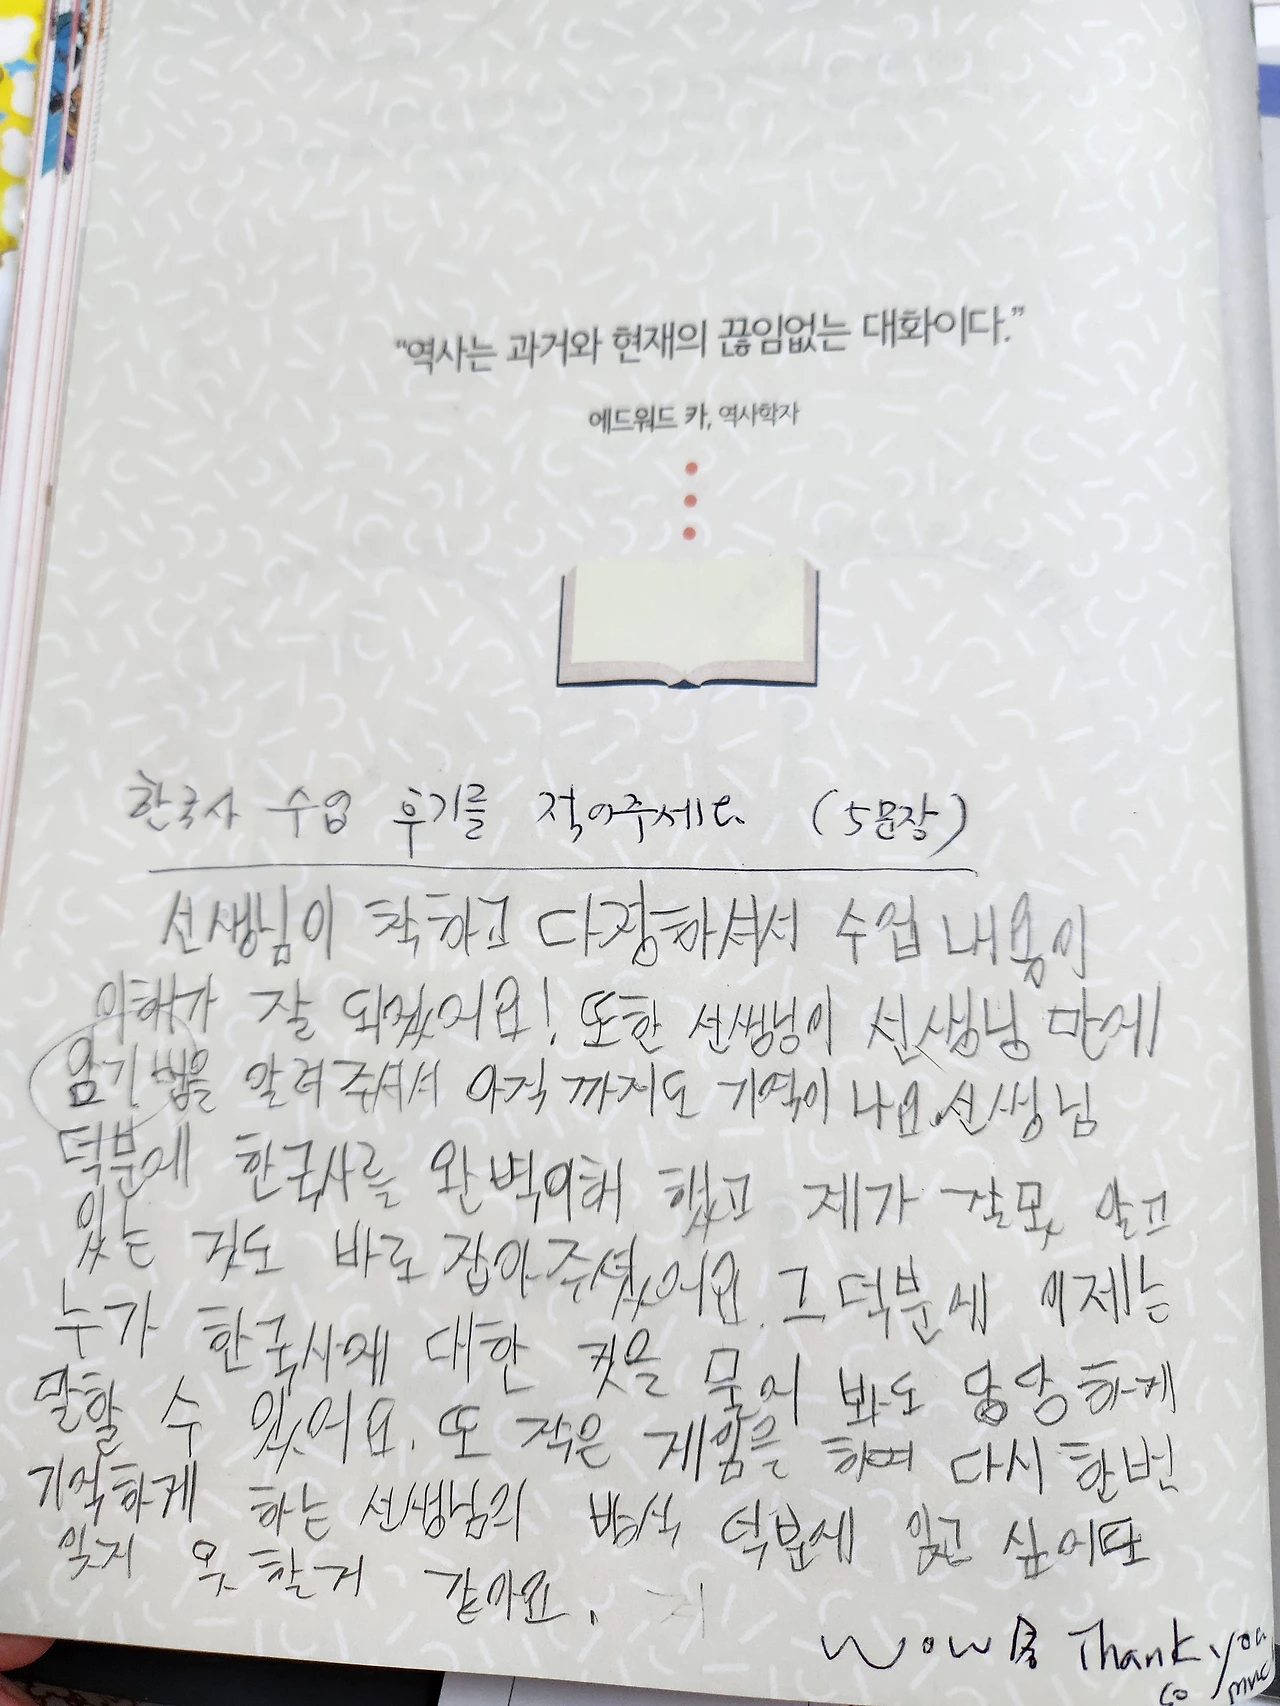 “역사는 과거와 현재의 끊임없는 대화이다.”
에드워드 카, 역사학자
한국사 수업 후기를 적어주세요 (5문장)
선생님이 착하고 다정하셔서 수업 내용이
이해가 잘 되었어요! 또한 선생님이 선생님 만에
암기법을 알려주셔서 아직까지도 기억이 나요. 선생님
덕분에 한국사를 완벽이해 했고 제가 잘못 알고
있는 것도 바로 잡아주셨어요. 그 덕분에 이제는
누가 한국사에 대한 것을 물어 봐도 당당하게
말할 수 있어요. 또 작은 게임을 하며 다시 한번
기억하게 하는 선생님의 방식 덕분에 잊고 싶어도
잊지 못 할거 같아요. 저
WOW Thank you
so much